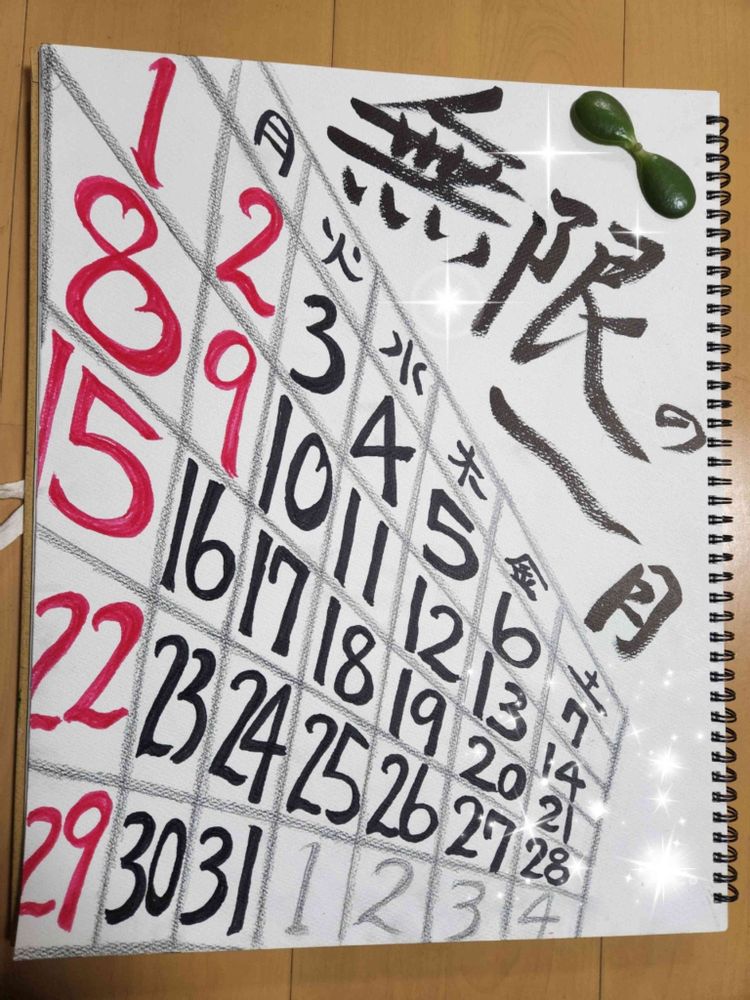 無限の一月
月 火 水 木 金 土
1 2 3 4 5 6 7
8 9 10 11 12 13 14
15 16 17 18 19 20 21
22 23 24 25 26 27 28
29 30 31 1 2 3 4